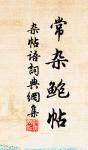 常杂鲍帖
杂帖语词典网集